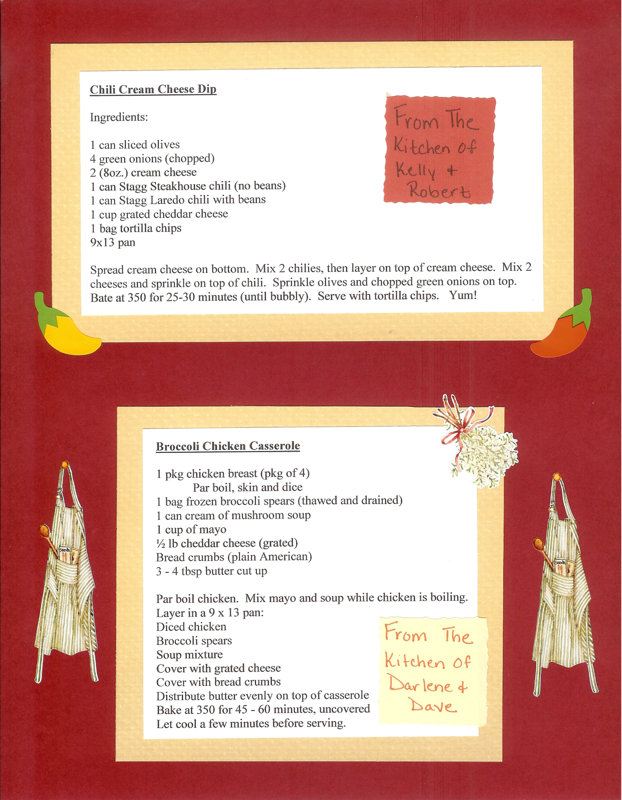 Chili Cream Cheese Dip
Ingredients:
1 can sliced olives
4 green onions (chopped)
2 (8oz.) cream cheese
1 can Stagg Steakhouse chili (no beans)
1 can Stagg Laredo chili with beans
1 cup grated cheddar cheese
1 bag tortilla chips
9x13 pan
Spread cream cheese on bottom. Mix 2 chilies, then layer on top of cream cheese. Mix 2
cheeses and sprinkle on top of chili. Sprinkle olives and chopped green onions on top.
Bate at 350 for 25-30 minutes (until bubbly). Serve with tortilla chips. Yum!
From The
Kitchen of
Kelly +
Robert
Broccoli Chicken Casserole
1 pkg chicken breast (pkg of 4)
Par boil, skin and dice
1 bag frozen broccoli spears (thawed and drained)
1 can cream of mushroom soup
1 cup of mayo
½ lb cheddar cheese (grated)
Bread crumbs (plain American)
3 - 4 tbsp butter cut up
Par boil chicken. Mix mayo and soup while chicken is boiling.
Layer in a 9 x 13 pan:
Diced chicken
Broccoli spears
Soup mixture
Cover with grated cheese
Cover with bread crumbs
Distribute butter evenly on top of casserole
Bake at 350 for 45 - 60 minutes, uncovered
Let cool a few minutes before serving.
From The
Kitchen Of
Darlene +
Dave